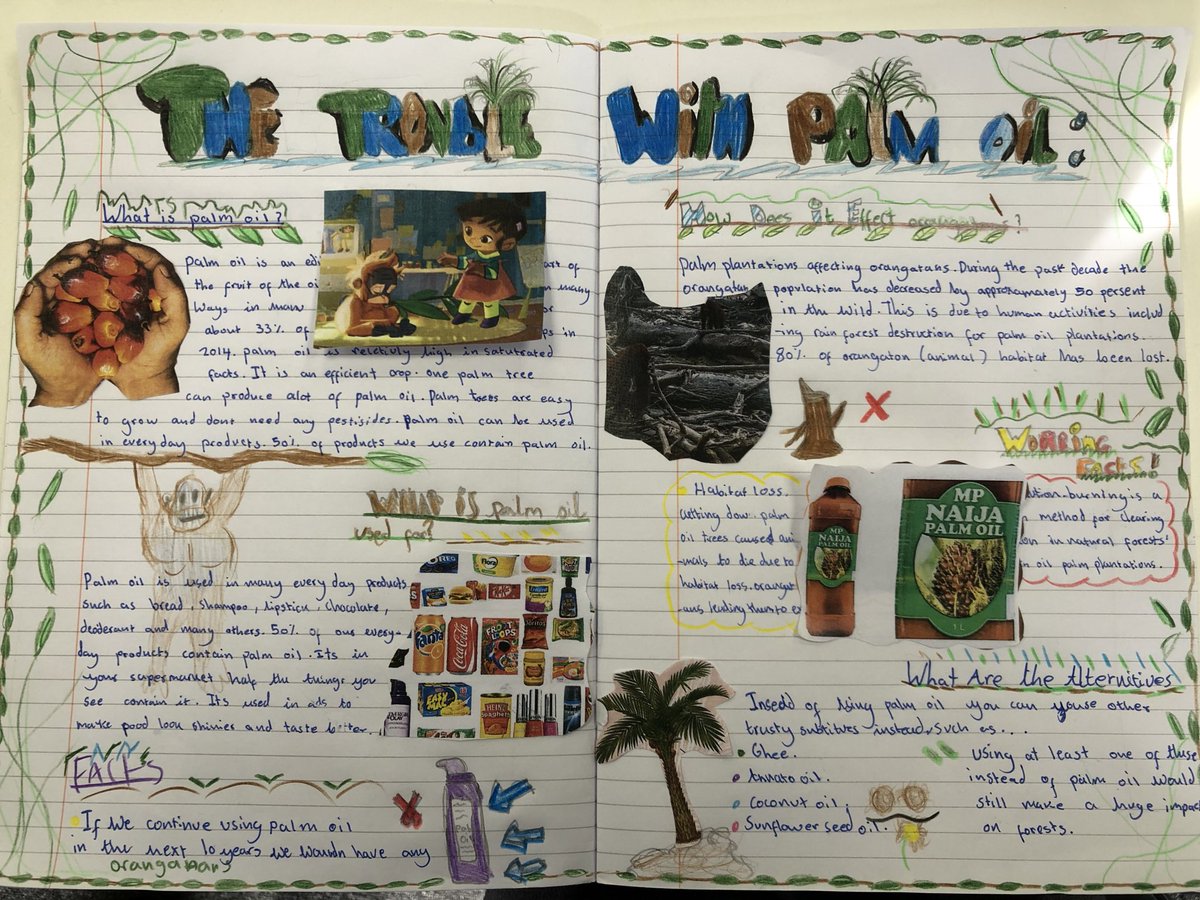 THE TROUBLE WITH PALM OIL:
What is palm oil?
Palm oil is an edi
the fruit of the oi
ways in many
about 33% of
2014. palm oil is relctivly high in saturated
facts. It is an efficient crop. one palm tree
can produce alot of palm oil. Palm trees are easy
to grow and dont need any pestisides. Palm oil can be used
in every day products. 50% of products we use contain palm oil.
art of
n many
or
ps in
WHAT IS palm oil
used for?
Palm oil is used in many every day products
such as bread, shampoo, lipstick, chocolate,
deoderant and many others. 50% of our every-
day products contain palm oil. Its in
your supermarket half the things you
see contain it. It's used in ads to
make food look shinier and taste better.
FACTS
If we continue using palm oil
in the next 10 years we wouldn have any
orangatans
How Does it Effect orangatans?
Palm plantations affecting orangatans. During the past decade the
orangatan population has decreased by approxamately 50 persent
in the wild. This is due to human activities includ
ing rain forest destruction for palm oil plantations.
80% of orangaton (animal) habitat has been lost.
Worring
Facts!
Habitat loss.
cutting down palm
oil trees caused ani
-mals to die due to
habitat loss. orangat
ans leading them to e
ution. burning is a
method for clearing
on in natural forests'
n oil palm plantations.
MP
NAIJA
PALM OIL
MP
NAIJA
PALM OIL
1 L
What Are the Alternitives
Insedd of Using palm oil you can youse other
trusty subtitues instead. Such as...
Ghee.
Annato oil.
Coconut oil;
Sunflower seed oil.
using at least one of these
instead of palm oil would
still make a huge impact
on forests.
OREO
Flora
Fanta
Coca-Cola
FROOT LOOPS
Doritos
EASY MAC
HEINZ
Spaghetti